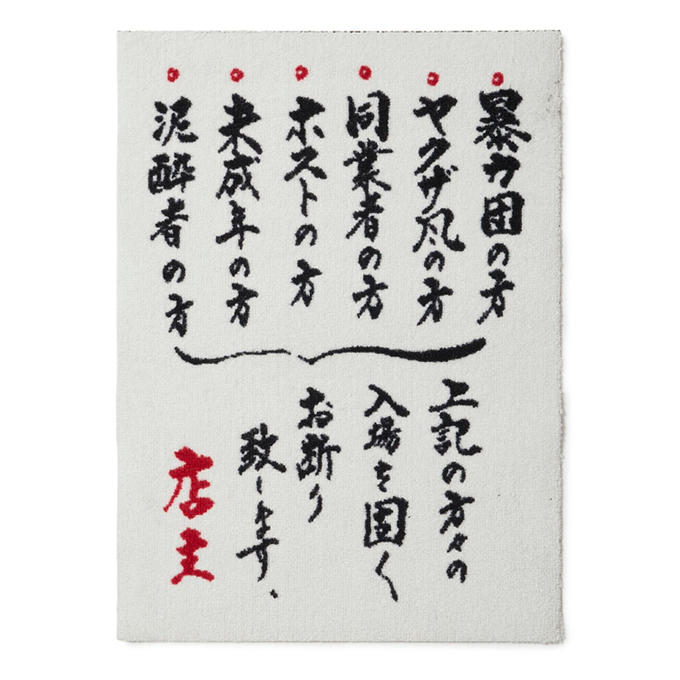 暴力団の方
ヤクザ風の方
同業者の方
ホストの方
未成年の方
泥酔者の方
上記の方々の
入場を固く
お断り
致します。
店主